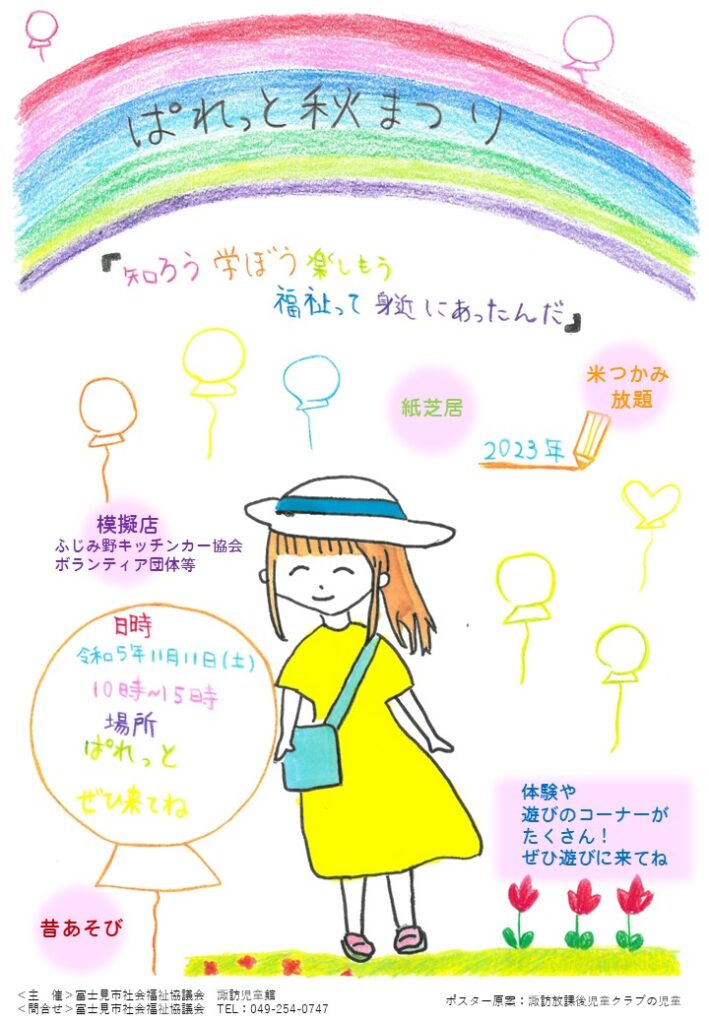 ぱれっと秋まつり
『知ろう 学ぼう 楽しもう
福祉って 身近にあったんだ』
米つかみ
放題
紙芝居
2023年
模擬店
ふじみ野キッチンカー協会
ボランティア団体等
日時
令和5年11月11日(土)
10時~15時
場所
ぱれっと
ぜひ来てね
体験や
遊びのコーナーが
たくさん！
ぜひ遊びに来てね
昔あそび
＜主　催＞富士見市社会福祉協議会　諏訪児童館
＜問合せ＞富士見市社会福祉協議会　TEL：049-254-0747
ポスター原案：諏訪放課後児童クラブの児童